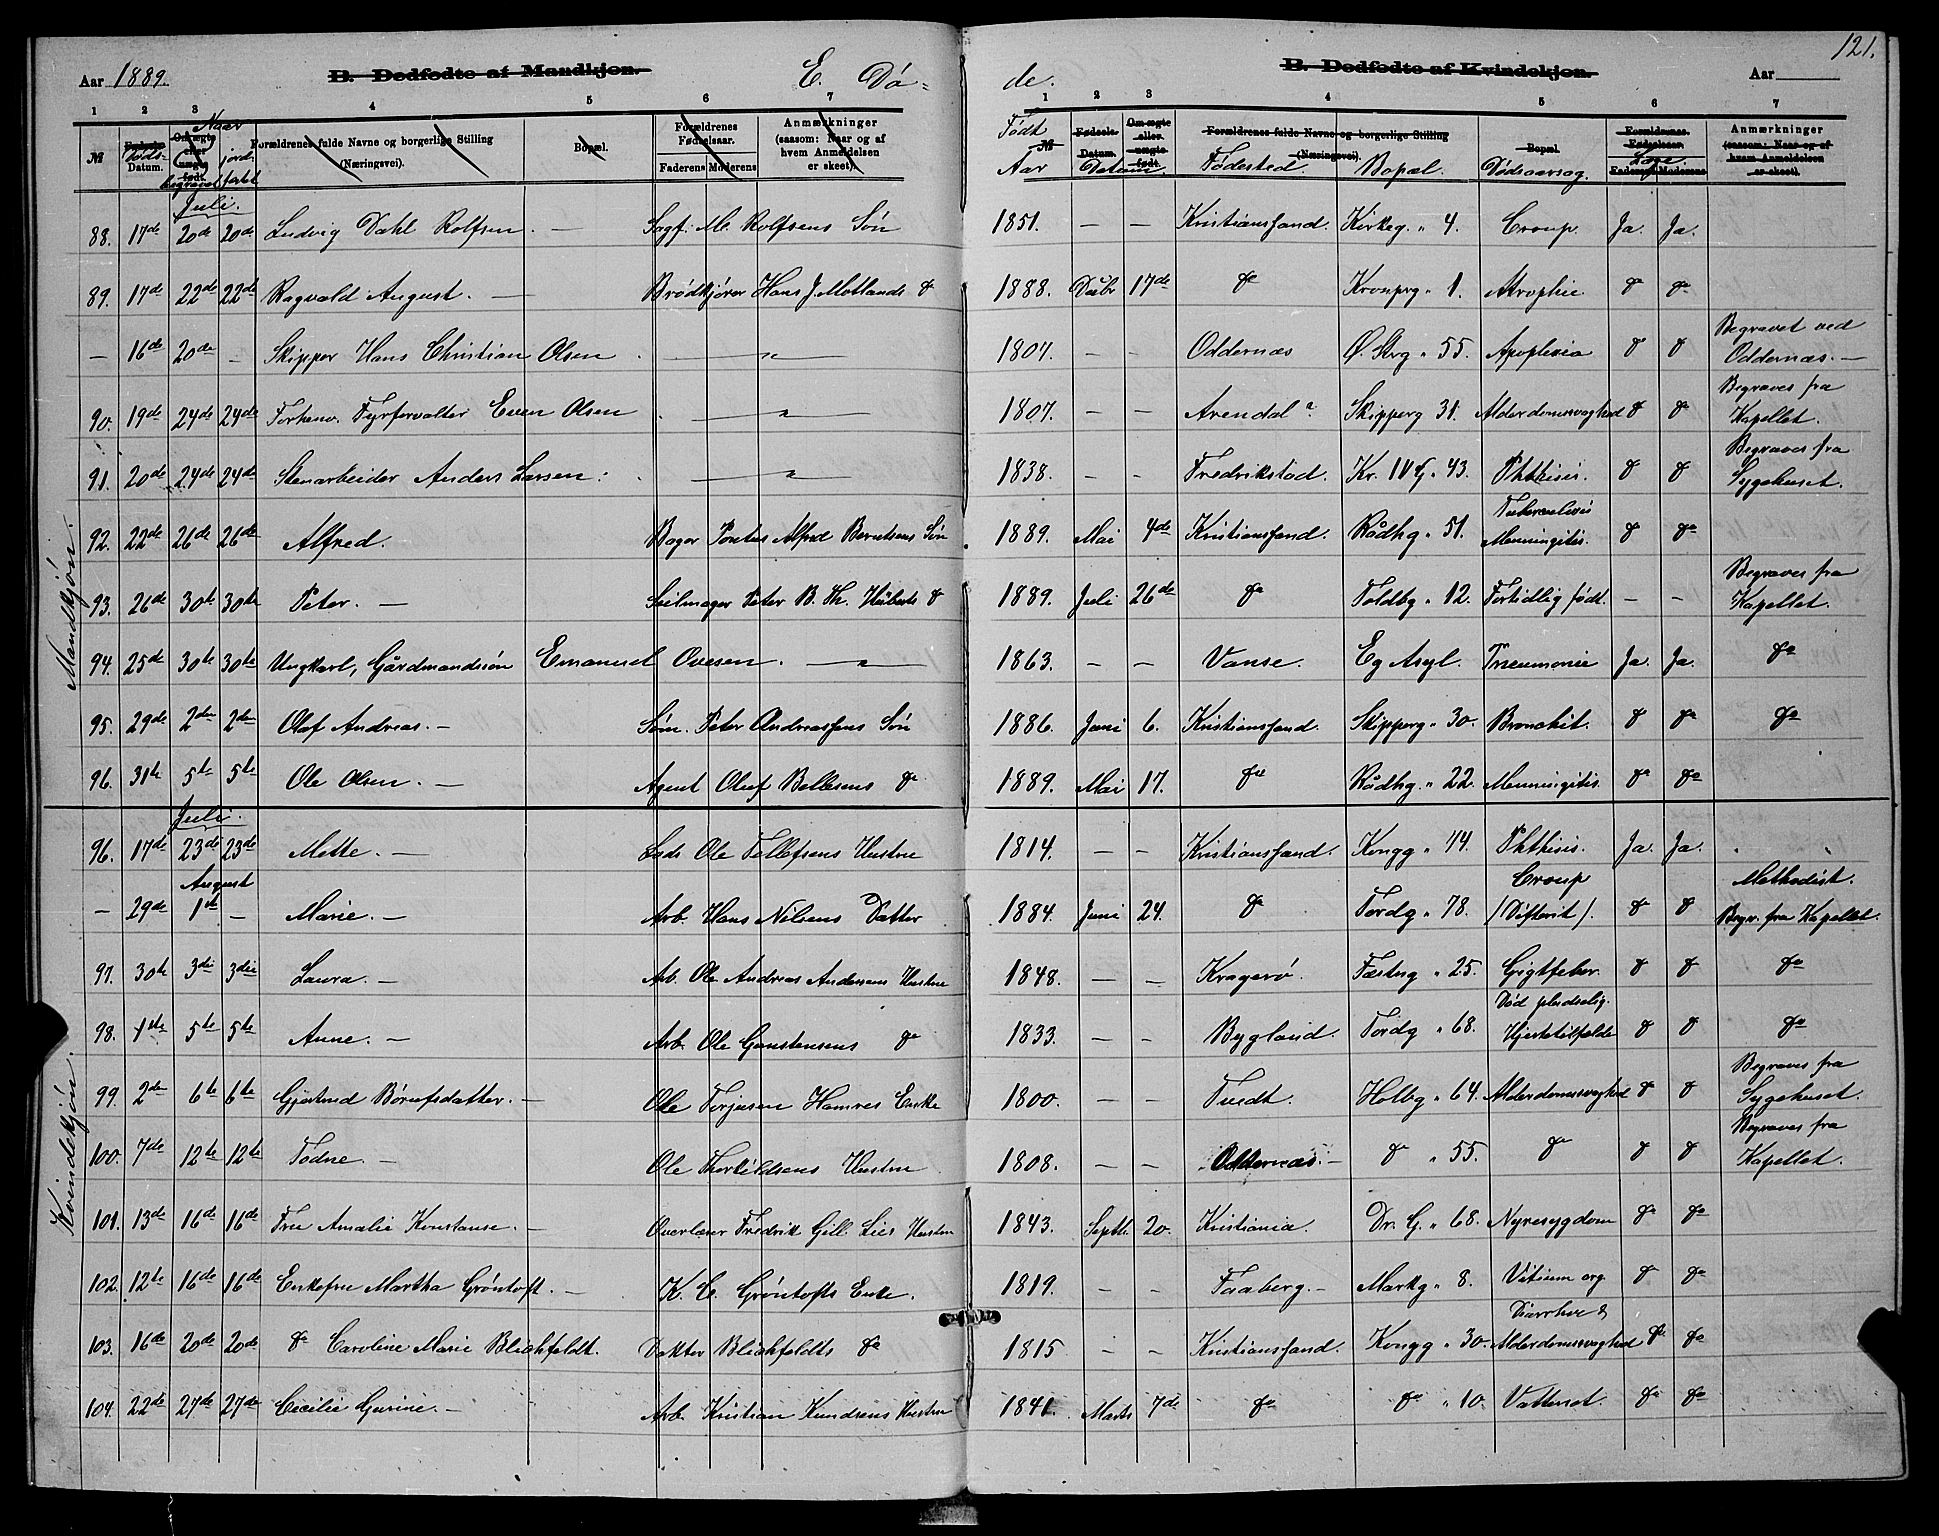 121.
Aar 1889. B. Dødfødte af Mandkjøn. E. Dö- de. B. Dødfødte af Kvindekjøn. Aar
1 2 3 4 5 6 7 1 2 3 4 5 6 7
№ Døds- Datum. Naar begravet jordfæstet Forældrenes fulde Navne og borgerlige Stilling (Næringsvei). Bopæl. Forældrenes Fødselsaar. Faderens Moderens Anmærkninger (saasom: Naar og af hvem Anmeldelsen er skeet).
Født Aar Datum Fødested. Bopæl. Dødsaarsag. Læge. Anmærkninger
Mandkjön.
Juli.
88. 17de 20de 20de Ludvig Dahl Rolfsen. — Sagf. M. Rolfsens Sön 1851. — — Kristianssand. Kirkeg. " 4. Croup. Ja. Ja.
89. 17de 22de 22de Ragvald August. — Brödkjörer Hans J. Motlands do 1888. Debr 17de do Kronprg " 1. Atrophie do do
— 16de 20de — Skipper Hans Christian Olsen — " — 1807. — — Oddernæs Ø. Strg " 55. Apoplexia do do Begravet ved Oddernæs. —
90. 19de 24de 24de Forhenv. Fyrforvalter Even Olsen — " — 1807. — — Arendal? Skipperg 31. Alderdomssvaghed do do Begraves fra Kapellet.
91. 20de 24de 24de Stenarbeider Anders Larsen. — " — 1838. — — Fredrikstad. Kr. IV G " 43. Phthisis. do do Begraves fra Sygehuset.
92. 22de 26de 26de Alfred. Bager Pontus Alfred Berntsens Sön 1889. Mai 4de Kristianssand. Rådhg " 51. Tuberculosis Menningitis. do do
93. 26de 30te 30te Peter. — Seilmager Peter B. Th. Huberts do 1889. Juli 26de do Toldbg " 12. Fortidlig født. — — Begraves fra Kapellet.
94. 25de 30te 30te Ungkarl, Gårdmandssön Emanuel Ovesen. — " — 1863. — — Vanse. Eg Asyl. Pneumonie Ja. Ja. do
95. 29de 2den 2den Olaf Andreas. — Söm. Peter Andreassens Sön 1886. Juni 6. Kristianssand. Skipperg " 30. Bronchit. do do do
96. 31te 5te 5te Ole Olsen. — Agent Oluf Bellesens do 1889. Mai 17. do Rådhg. " 22. Menningitis. do do
Kvindekjön.
Juli.
96. 17de 23de 23de Mette. — Lods Ole Tellefsens Hustru 1814. — — Kristianssand. Kongg " 44. Phthisis. Ja. Ja.
August
— 29de 1ste — Marie. — Arb. Hans Nilsens Datter 1884. Juni 24. do Tordg " 78. Croup (Difterit). do do Methodist. Begr. fra Kapellet.
97. 30te 3die 3die Laura. — Arb. Ole Andreas Andersens Hustru 1848. — — Kragerö. Fæstng " 25. Gigtfeber. do do do
98. 1ste 5te 5te Anne. — Arb. Ole Gunstensens do 1833. — — Bygland. Tordg " 68. Död pludselig. Hjertetilfælde do do do
99. 2den 6te 6te Gjertrud Börufsdatter. — Ole Torjusen Hamres Enke 1800. — — Tvedt. Holbg " 64. Alderdomssvaghed do do Begraves fra Sygehuset.
100. 7de 12te 12te Todne. — Ole Therkildsens Hustru 1808. — — Oddernæs. — do " 55. do do do Begraves fra Kapellet.
101. 13de 16de 16de Fru Amalie Konstanse. — Overlærer Fredrik Gill. Lies Hustru 1843. Septbr. 20. Kristiania. Dr. G. " 68. Nyresygdom do do
102. 12te 16de 16de Enkefru Martha Gröntoft. — K. C. Gröntofts Enke. 1819. — — Faaberg. — Markg " 8. Vitium org. do do
103. 16de 20de 20de do Caroline Marie Blichfeldt. Doktor Blichfeldts do 1815 — — Kristianssand. Kongg " 30. Diarrhoe & Alderdomssvaghed do do
104. 22de 27de 27de Cecilie Gurine. — Arb. Kristian Knudsens Hustru 1841. Marts 7de do do " 10. Vattersot. do do